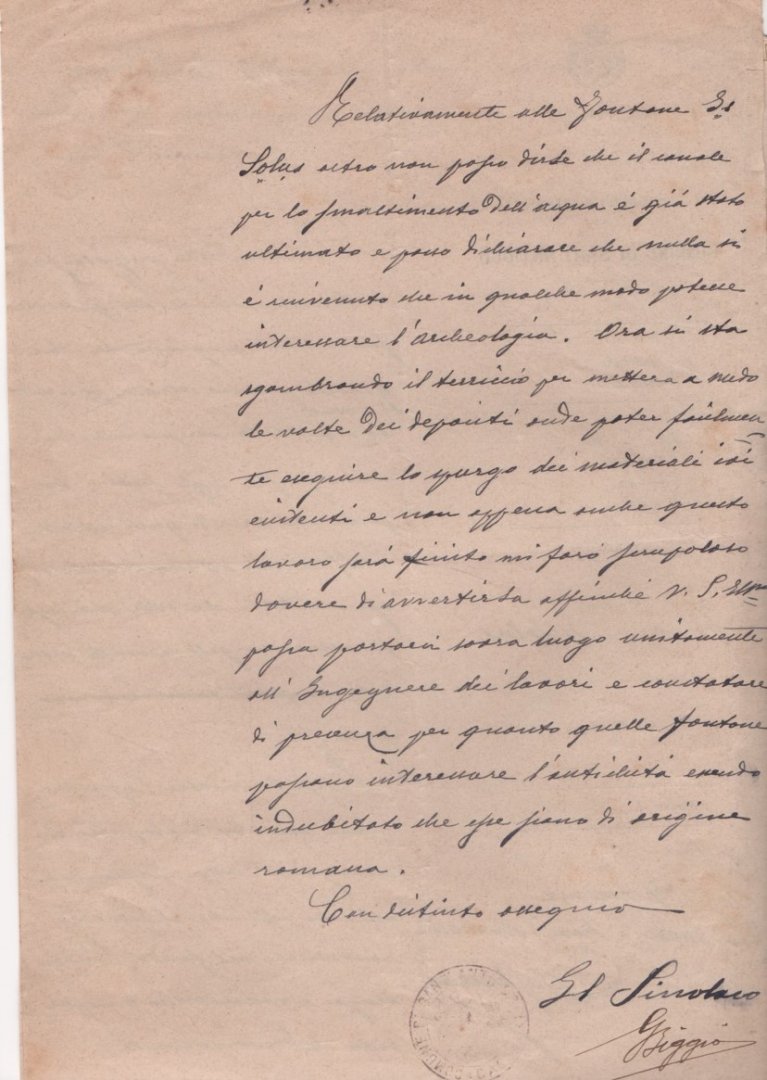 Relativamente alle fontane Is
Solus altro non posso dirle che il canale
per lo smaltimento dell'acqua é giá stato
ultimato e posso dichiarare che nulla si
é rinvenuto che in qualche modo potesse
interessare l'archeologia. Ora si sta
sgombrando il terriccio per mettere a nudo
le volte dei depositi onde poter facilmen
te eseguire lo spurgo dei materiali ivi
esistenti e non appena anche questo
lavoro sará finito mi faró scrupoloso
dovere di avvertirla affinché V. S. Illma
possa portarsi sovra luogo unitamente
all'Ingegnere dei lavori e constatare
di presenza per quanto quelle fontane
possano interessare l'antichitá essendo
indubitato che esse siano di origine
romana.
Con distinto ossequio
Il Sindaco
Biggio
COMUNE DI